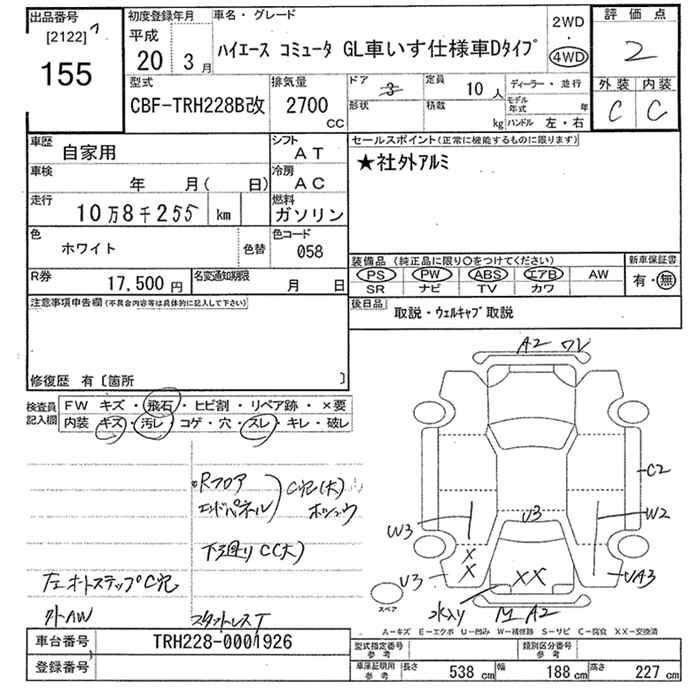 出品番号
[2122]
155
初度登録年月
平成
20 3 月
車名・グレード
ハイエース コミュータ GL車いす仕様車Dタイプ
2WD
4WD
評価点
2
外装 内装
C C
型式
CBF-TRH228B改
排気量
2700
CC
ドア
3
形状
定員
10 人
積載
kg
ディーラー・並行
モデル年式 年
ハンドル 左・右
車歴
自家用
シフト
AT
車検
年 月( 日)
冷房
AC
走行
10万8千255 km
燃料
ガソリン
色
ホワイト
色替
色コード
058
R券
17,500 円
名変通知期限
月 日
セールスポイント(正常に機能するものに限ります)
★社外アルミ
装備品(純正品に限り〇をつけてください)
PS PW ABS エアB AW
SR ナビ TV カワ
新車保証書
有・無
後日品
取説・ウェルキャブ取説
注意事項申告欄(不具合内容等は具体的に記入して下さい)
修復歴 有〔箇所 〕
検査員記入欄
FW キズ・飛石・ヒビ割・リペア跡・×要
内装 キズ・汚レ・コゲ・穴・スレ・キレ・破レ
Rフロア
エンドパネル
C穴(大)
ホシュウ
下廻りC(大)
左オートステップC穴
外AW
スタットレスT
A2 ワレ
C2
W3
U3
W2
X
X
U3
XX
UA3
A2
スペア
A－キズ E－エクボ U－凹み W－補修跡 S－サビ C－腐食 XX－交換済
車台番号
TRH228-0001926
登録番号
型式指定番号
参考
類別区分番号
参考
車庫証明用
参考
長さ 538 cm 幅 188 cm 高さ 227 cm